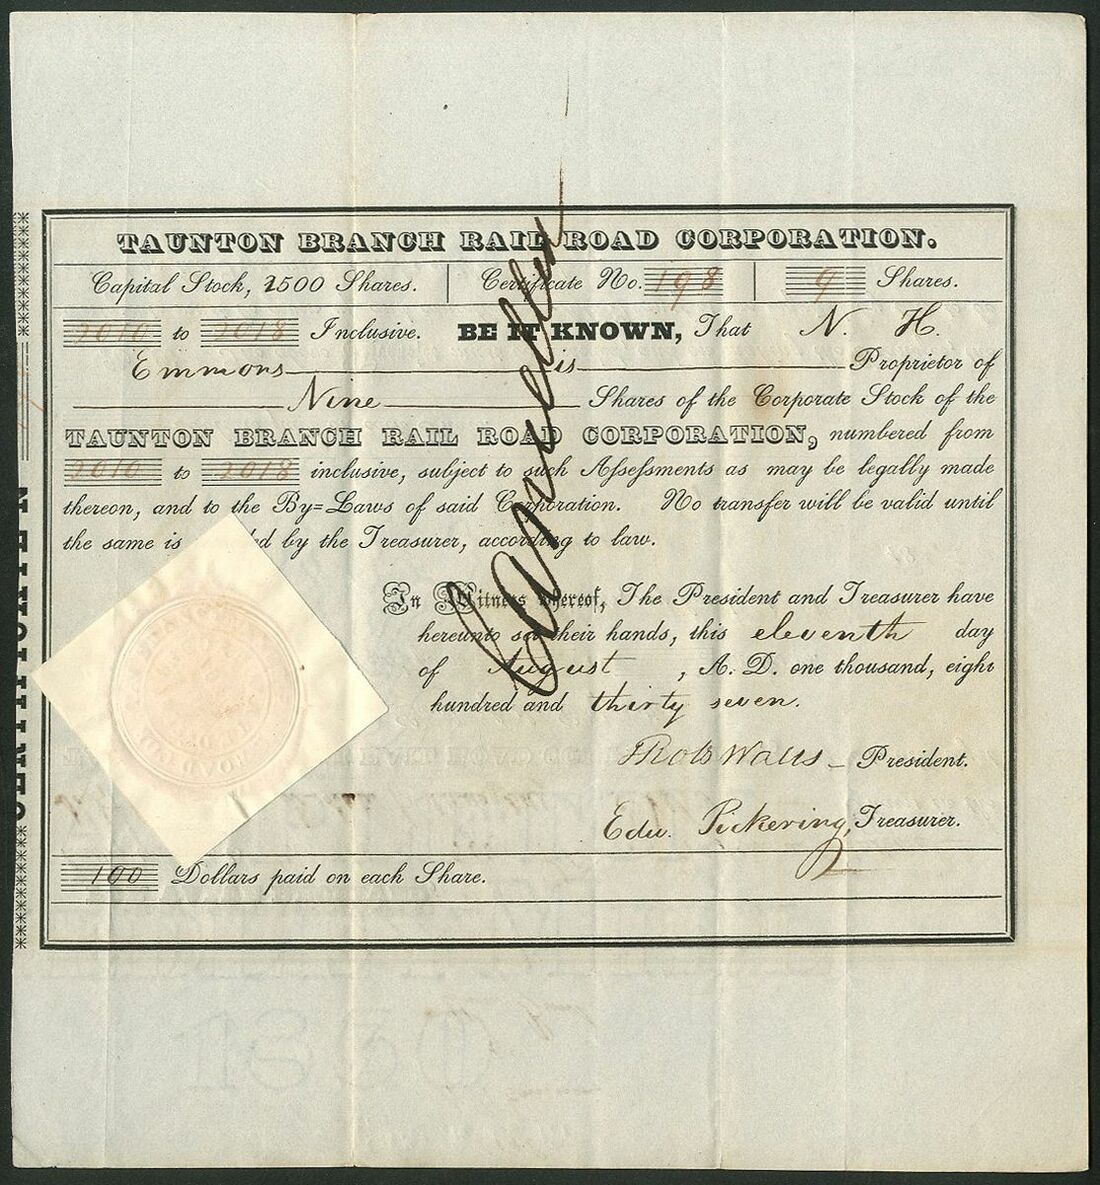 TAUNTON BRANCH RAIL ROAD CORPORATION.
Capital Stock, 2500 Shares. Certificate No. 198 9 Shares.
2010 to 2018 Inclusive. BE IT KNOWN, That N. H.
Emmons is Proprietor of
Nine Shares of the Corporate Stock of the
TAUNTON BRANCH RAIL ROAD CORPORATION, numbered from
2010 to 2018 inclusive, subject to such Assessments as may be legally made
thereon, and to the By=Laws of said Corporation. No transfer will be valid until
the same is by the Treasurer, according to law.
In Witness whereof, The President and Treasurer have
hereunto set their hands, this eleventh day
of August, A. D. one thousand, eight
hundred and thirty seven.
President.
Edw. Pickering, Treasurer.
100 Dollars paid on each Share.
Cancelled